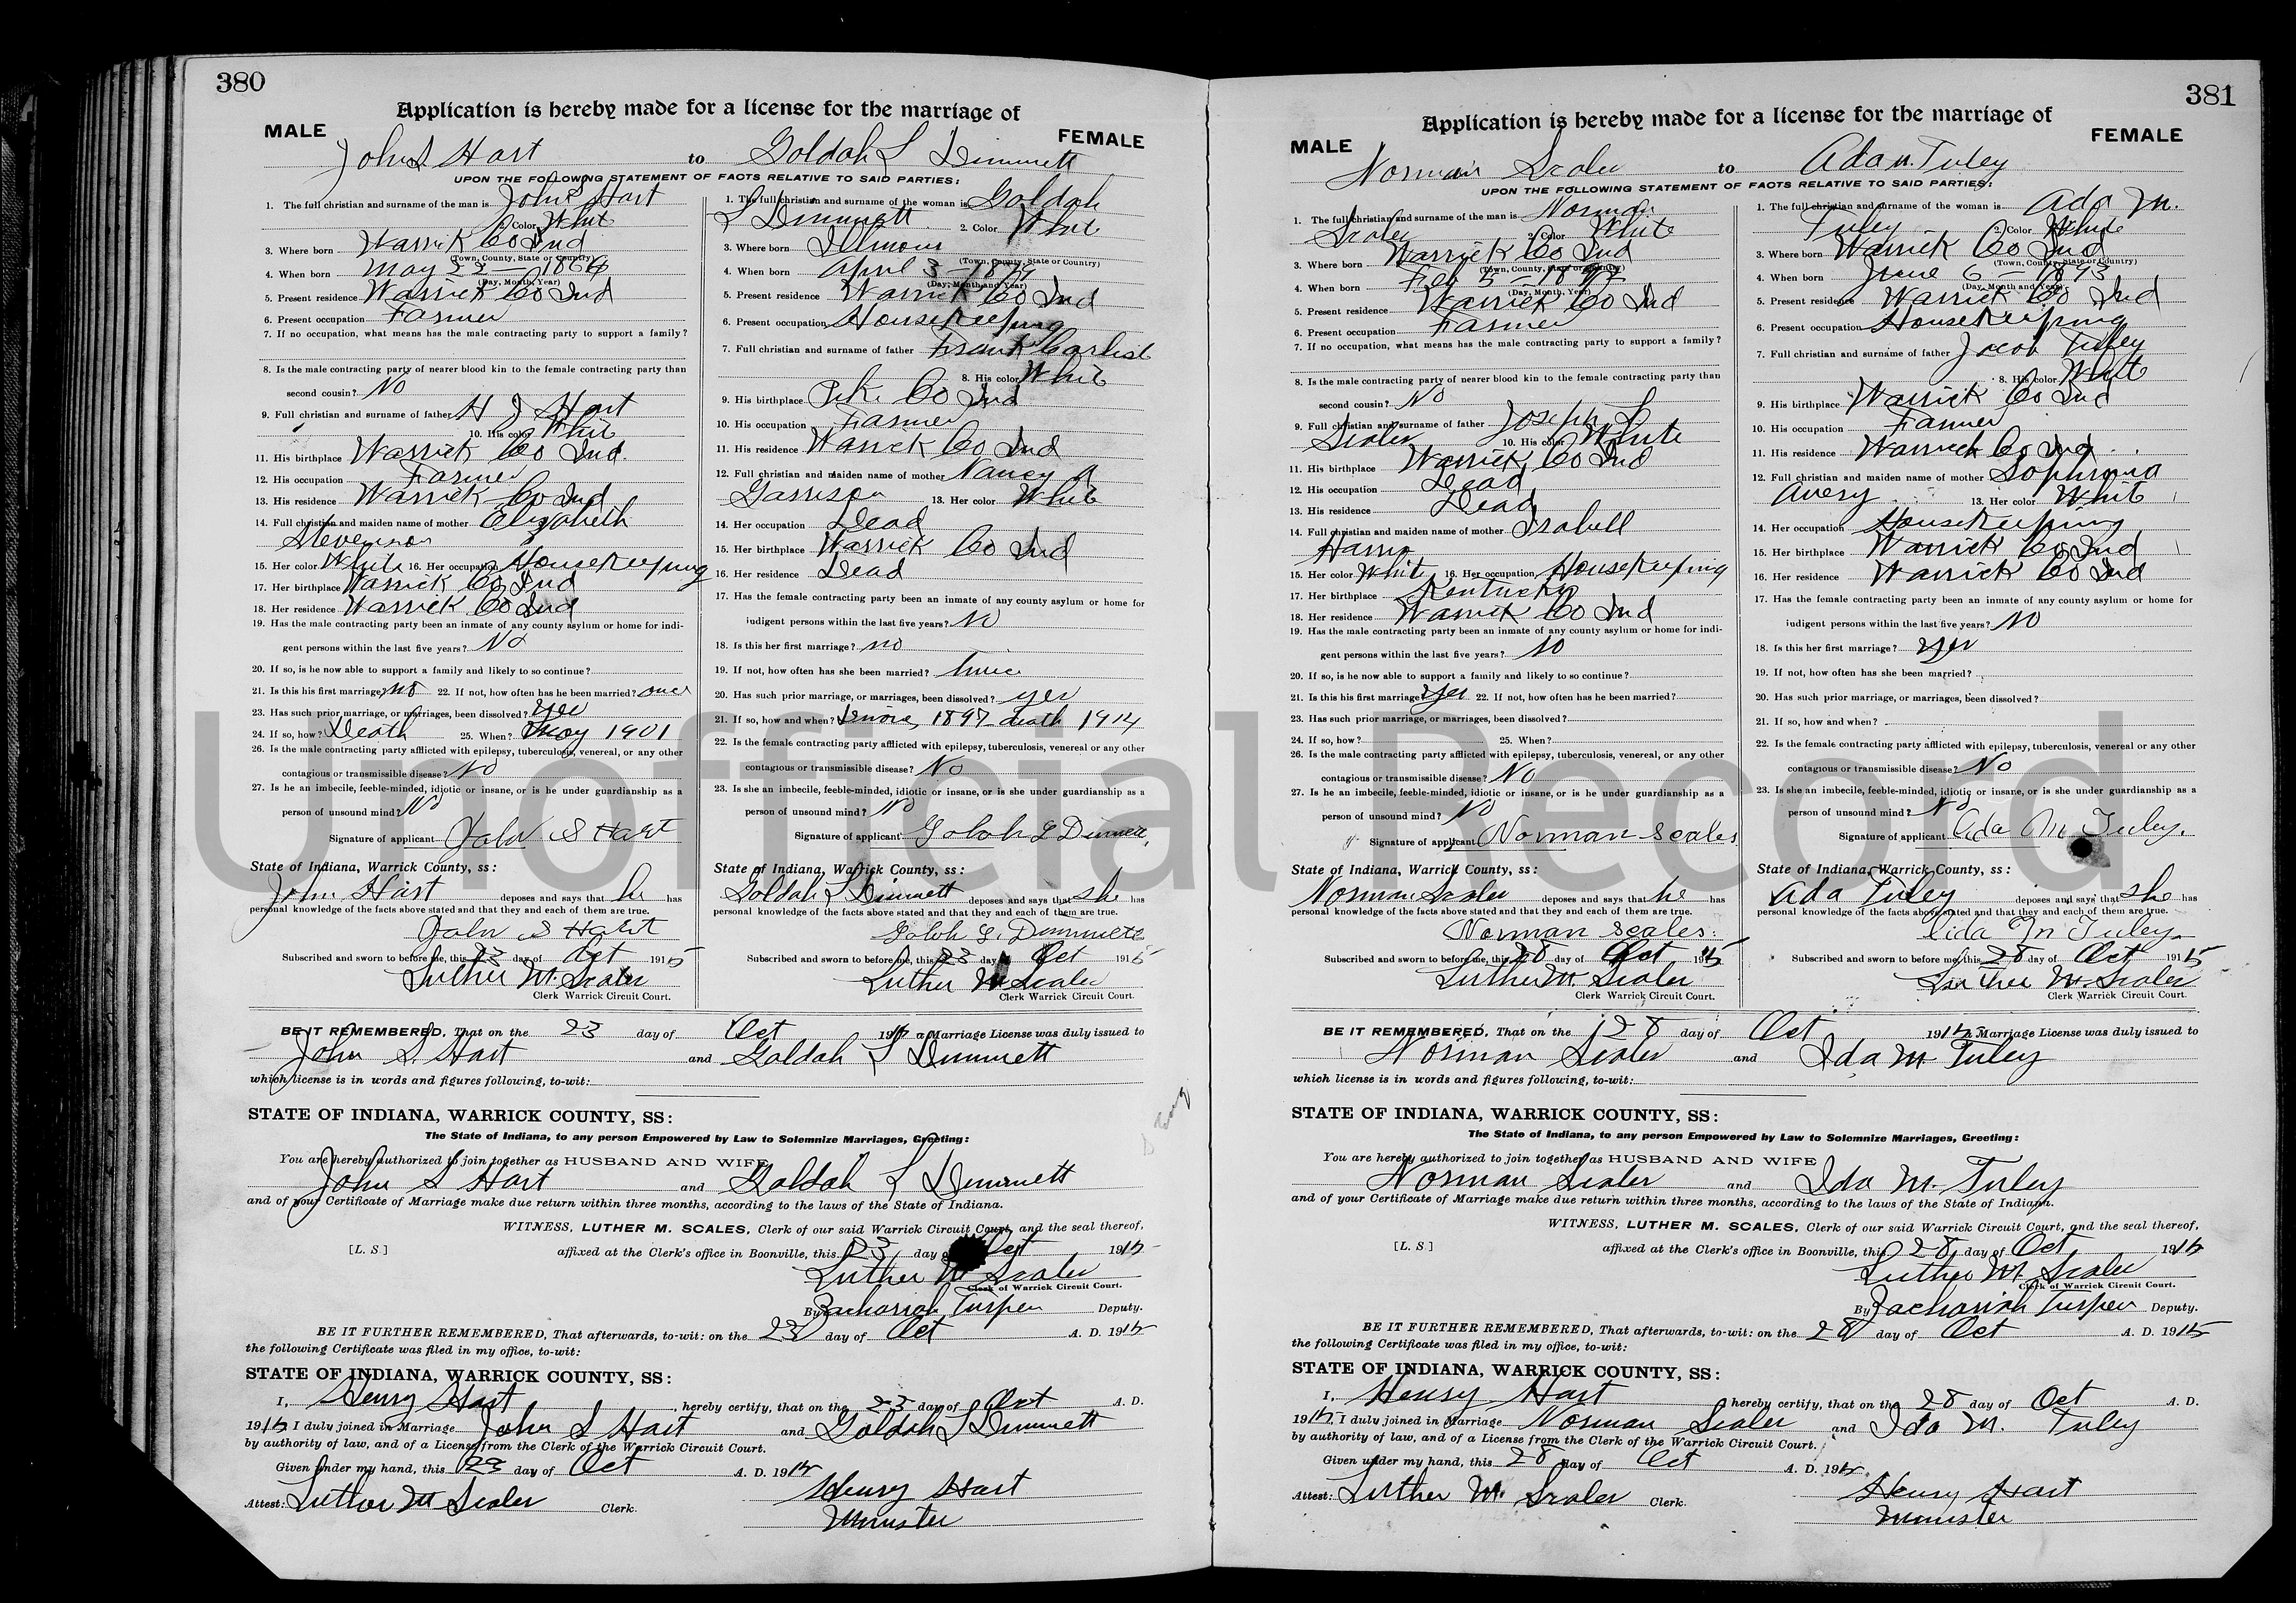 380
Application is hereby made for a license for the marriage of
MALE FEMALE
John S Hart to Goldah L Dimmett
UPON THE FOLLOWING STATEMENT OF FACTS RELATIVE TO SAID PARTIES:
1. The full christian and surname of the man is John S Hart
2. Color White
3. Where born Warrick Co Ind
(Town, County, State or Country)
4. When born May 23 – 186
(Day, Month, Year)
5. Present residence Warrick Co Ind
6. Present occupation Farmer
7. If no occupation, what means has the male contracting party to support a family?
8. Is the male contracting party of nearer blood kin to the female contracting party than
second cousin? No
9. Full christian and surname of father H J Hart
10. His color White
11. His birthplace Warrick Co Ind.
12. His occupation Farmer
13. His residence Warrick Co Ind
14. Full christian and maiden name of mother Elizabeth
Stevenson
15. Her color White 16. Her occupation Housekeeping
17. Her birthplace Warrick Co Ind
18. Her residence Warrick Co Ind
19. Has the male contracting party been an inmate of any county asylum or home for indi-
gent persons within the last five years? No
20. If so, is he now able to support a family and likely to so continue?
21. Is this his first marriage? no 22. If not, how often has he been married? once
23. Has such prior marriage, or marriages, been dissolved? yes
24. If so, how? Death 25. When? May 1901
26. Is the male contracting party afflicted with epilepsy, tuberculosis, venereal, or any other
contagious or transmissible disease? No
27. Is he an imbecile, feeble-minded, idiotic or insane, or is he under guardianship as a
person of unsound mind? No
Signature of applicant John S Hart
State of Indiana, Warrick County, ss:
John Hart deposes and says that he has
personal knowledge of the facts above stated and that they and each of them are true.
John S Hart
Subscribed and sworn to before me, this 23 day of Oct 1915
Luther M. Scales
Clerk Warrick Circuit Court.
1. The full christian and surname of the woman is Goldah
L Dimmett 2. Color White
3. Where born Illinois
(Town, County, State or Country)
4. When born April 3 – 1879
(Day, Month and Year)
5. Present residence Warrick Co Ind
6. Present occupation Housekeeping
7. Full christian and surname of father Frank Carlist
8. His color White
9. His birthplace Pike Co Ind
10. His occupation Farmer
11. His residence Warrick Co Ind
12. Full christian and maiden name of mother Nancy A
Garrison 13. Her color White
14. Her occupation Dead
15. Her birthplace Warrick Co Ind
16. Her residence Dead
17. Has the female contracting party been an inmate of any county asylum or home for
indigent persons within the last five years? No
18. Is this her first marriage? no
19. If not, how often has she been married? twice
20. Has such prior marriage, or marriages, been dissolved? yes
21. If so, how and when? 1897 death 1914
22. Is the female contracting party afflicted with epilepsy, tuberculosis, venereal or any other
contagious or transmissible disease? No
23. Is she an imbecile, feeble-minded, idiotic or insane, or is she under guardianship as a
person of unsound mind? No
Signature of applicant Goldah L Dimmett
State of Indiana, Warrick County, ss:
Goldah L Dimmett deposes and says that she has
personal knowledge of the facts above stated and that they and each of them are true.
Goldah L. Dimmett
Subscribed and sworn to before me, this 23 day Oct 1915
Luther M Scales
Clerk Warrick Circuit Court.
BE IT REMEMBERED, That on the 23 day of Oct 1915 a Marriage License was duly issued to
John S. Hart and Goldah L Dimmett
which license is in words and figures following, to-wit:
STATE OF INDIANA, WARRICK COUNTY, SS:
The State of Indiana, to any person Empowered by Law to Solemnize Marriages, Greeting:
You are hereby authorized to join together as HUSBAND AND WIFE
John S Hart and Goldah L Dimmett
and of your Certificate of Marriage make due return within three months, according to the laws of the State of Indiana.
WITNESS, LUTHER M. SCALES, Clerk of our said Warrick Circuit Court, and the seal thereof,
[L. S.] affixed at the Clerk's office in Boonville, this 23 day of Oct 1915
Luther M Scales
Clerk of Warrick Circuit Court.
By Zachariah Turpen Deputy.
BE IT FURTHER REMEMBERED, That afterwards, to-wit: on the 23 day of Oct A. D. 1915
the following Certificate was filed in my office, to-wit:
STATE OF INDIANA, WARRICK COUNTY, SS:
I, Henry Hart, hereby certify, that on the 23 day of Oct A. D.
1915 I duly joined in Marriage John S Hart and Goldah L Dimmett
by authority of law, and of a License from the Clerk of the Warrick Circuit Court.
Given under my hand, this 23 day of Oct A. D. 1915
Henry Hart
Attest: Luther M Scales Clerk.
Minister
381
Application is hereby made for a license for the marriage of
MALE FEMALE
Norman Scales to Ada M. Tuley
UPON THE FOLLOWING STATEMENT OF FACTS RELATIVE TO SAID PARTIES:
1. The full christian and surname of the man is Norman
Scales 2. Color White
3. Where born Warrick Co Ind
(Town, County, State or Country)
4. When born Feb 5 – 18
(Day, Month, Year)
5. Present residence Warrick Co Ind
6. Present occupation Farmer
7. If no occupation, what means has the male contracting party to support a family?
8. Is the male contracting party of nearer blood kin to the female contracting party than
second cousin? No
9. Full christian and surname of father Joseph L
Scales 10. His color White
11. His birthplace Warrick Co Ind
12. His occupation Dead
13. His residence Dead
14. Full christian and maiden name of mother Isabell
Harris
15. Her color White 16. Her occupation Housekeeping
17. Her birthplace Kentucky
18. Her residence Warrick Co Ind
19. Has the male contracting party been an inmate of any county asylum or home for indi-
gent persons within the last five years? No
20. If so, is he now able to support a family and likely to so continue?
21. Is this his first marriage? yes 22. If not, how often has he been married?
23. Has such prior marriage, or marriages, been dissolved?
24. If so, how? 25. When?
26. Is the male contracting party afflicted with epilepsy, tuberculosis, venereal, or any other
contagious or transmissible disease? No
27. Is he an imbecile, feeble-minded, idiotic or insane, or is he under guardianship as a
person of unsound mind? No
Signature of applicant Norman Scales
State of Indiana, Warrick County, ss:
Norman Scales deposes and says that he has
personal knowledge of the facts above stated and that they and each of them are true.
Norman Scales.
Subscribed and sworn to before me, this 28 day of Oct 1915
Luther M. Scales
Clerk Warrick Circuit Court.
1. The full christian and surname of the woman is Ada M.
Tuley 2. Color White
3. Where born Warrick Co Ind
(Town, County, State or Country)
4. When born June 6 – 1893
(Day, Month and Year)
5. Present residence Warrick Co Ind
6. Present occupation Housekeeping
7. Full christian and surname of father Jacob Tuley
8. His color White
9. His birthplace Warrick Co Ind
10. His occupation Farmer
11. His residence Warrick Co Ind
12. Full christian and maiden name of mother Sophrona
Avery 13. Her color White
14. Her occupation Housekeeping
15. Her birthplace Warrick Co Ind
16. Her residence Warrick Co Ind
17. Has the female contracting party been an inmate of any county asylum or home for
indigent persons within the last five years? No
18. Is this her first marriage? yes
19. If not, how often has she been married?
20. Has such prior marriage, or marriages, been dissolved?
21. If so, how and when?
22. Is the female contracting party afflicted with epilepsy, tuberculosis, venereal or any other
contagious or transmissible disease? No
23. Is she an imbecile, feeble-minded, idiotic or insane, or is she under guardianship as a
person of unsound mind? No
Signature of applicant Ada M Tuley.
State of Indiana, Warrick County, ss:
Ada Tuley deposes and says that she has
personal knowledge of the facts above stated and that they and each of them are true.
Ada M Tuley
Subscribed and sworn to before me, this 28 day of Oct 1915
Luther M. Scales
Clerk Warrick Circuit Court.
BE IT REMEMBERED, That on the 28 day of Oct 1915 a Marriage License was duly issued to
Norman Scales and Ida M Tuley
which license is in words and figures following, to-wit:
STATE OF INDIANA, WARRICK COUNTY, SS:
The State of Indiana, to any person Empowered by Law to Solemnize Marriages, Greeting:
You are hereby authorized to join together as HUSBAND AND WIFE
Norman Scales and Ida M. Tuley
and of your Certificate of Marriage make due return within three months, according to the laws of the State of Indiana.
WITNESS, LUTHER M. SCALES, Clerk of our said Warrick Circuit Court, and the seal thereof,
[L. S.] affixed at the Clerk's office in Boonville, this 28 day of Oct 1915
Luther M. Scales
Clerk of Warrick Circuit Court.
By Zachariah Turpen Deputy.
BE IT FURTHER REMEMBERED, That afterwards, to-wit: on the 28 day of Oct A. D. 1915
the following Certificate was filed in my office, to-wit:
STATE OF INDIANA, WARRICK COUNTY, SS:
I, Henry Hart hereby certify, that on the 28 day of Oct A. D.
1915, I duly joined in Marriage Norman Scales and Ida M. Tuley
by authority of law, and of a License from the Clerk of the Warrick Circuit Court.
Given under my hand, this 28 day of Oct A. D. 1915
Henry Hart
Attest: Luther M. Scales Clerk.
Minister
Unofficial Record